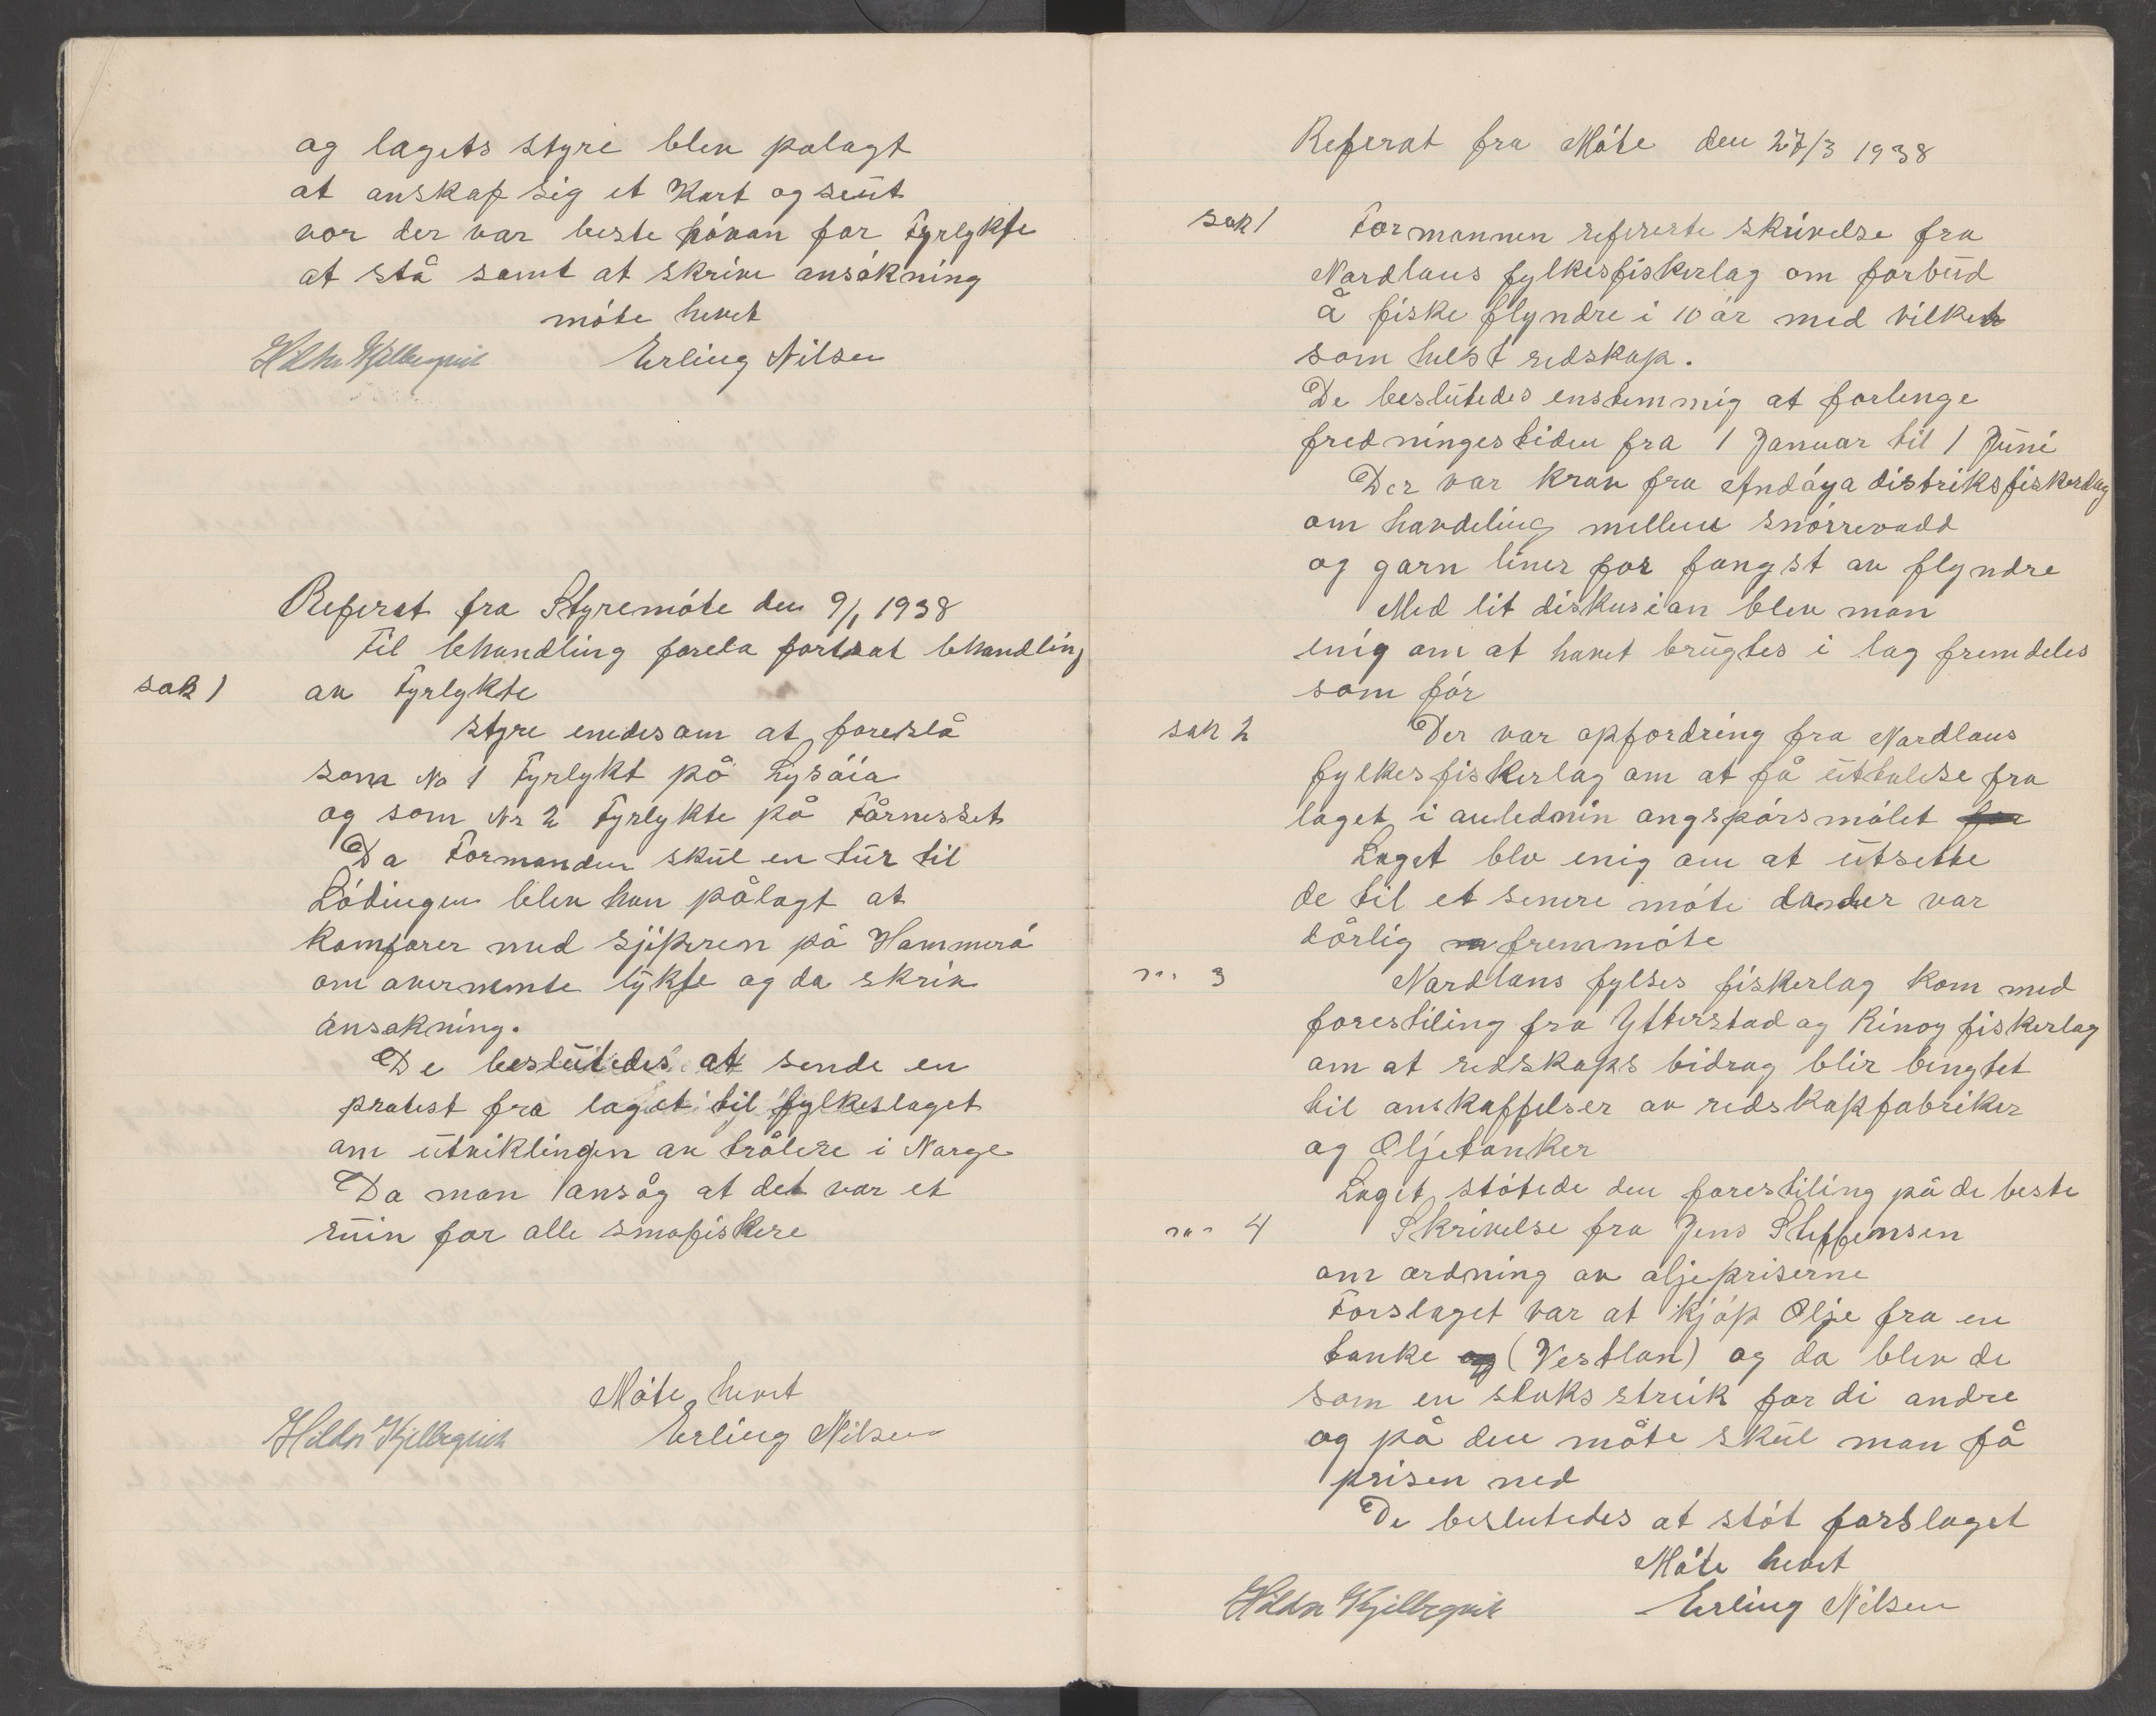 og lagets styre blev polagt
at anskap sig et Kart og seut
vor der var beste for Fyrlykte
at stå samt at skrive ansókning
móte hevet
Erling Nilsen
Referat fra Styremóte den 9/1 1938
Til behandling forela fortsat behandling
sak 1 av Fyrlykte
styre enedes om at foreslå
som No 1 Fyrlykt på Lysóia
og som Nr 2 Fyrlykte på Fårnesset
Da Formanden skul en tur til
Lódingen blev han pålagt at
komforer med sjiperen på Hammeró
om overnemte lykte og da skriv
ansokning.
De beslutedes at sende en
protest fra laget til fylkeslaget
om utviklingen av trålere i Norge
Da man ansåg at det var et
ruin for alle smofiskere
Móte hevet
Erling Nilsen
Referat fra Móte den 27/3 1938
sak 1 Formannen refererte skrivelse fra
Nordlans fylkesfiskerlag om forbud
å fiske flyndre i 10 år med vilket
som helst redskap.
De beslutedes enstemmig at forlenge
fredningestiden fra 1 Januar til 1 Juni
Der var krav fra Andóya distriksfiskerlag
om havdeling mellem snórrevadd
og garn liner for fangst av flyndre
Med lit diskusian blev man
enig om at havet brugtes i lag fremdeles
som fór
sak 2 Der var opfordring fra Nordlans
fylkesfiskerlag om at få uttalelse fra
laget i anlednin angspórsmålet for
Laget blv enig om at utsette
de til et senere móte da der var
dårlig fremmóte
" 3 Nordlans fylses fiskerlag kom med
forestiling fra Ytterstad og Rinoy fiskerlag
om at redskaps bidrag blir bengtet
til anskaffelser av redskapfabriker
og Oljetanker
Laget stótede den forestiling på de beste
" 4 Skrivelse fra Jens Steffensen
om ordning av oljepriserne
Forslaget var at kjóp Olje fra en
tanke og (Vestlan) og da blev de
som en slaks streik for di andre
og på den måte skul man få
prisen ned
De beslutedes at stót forslaget
Móte hevet
Erling Nilsen